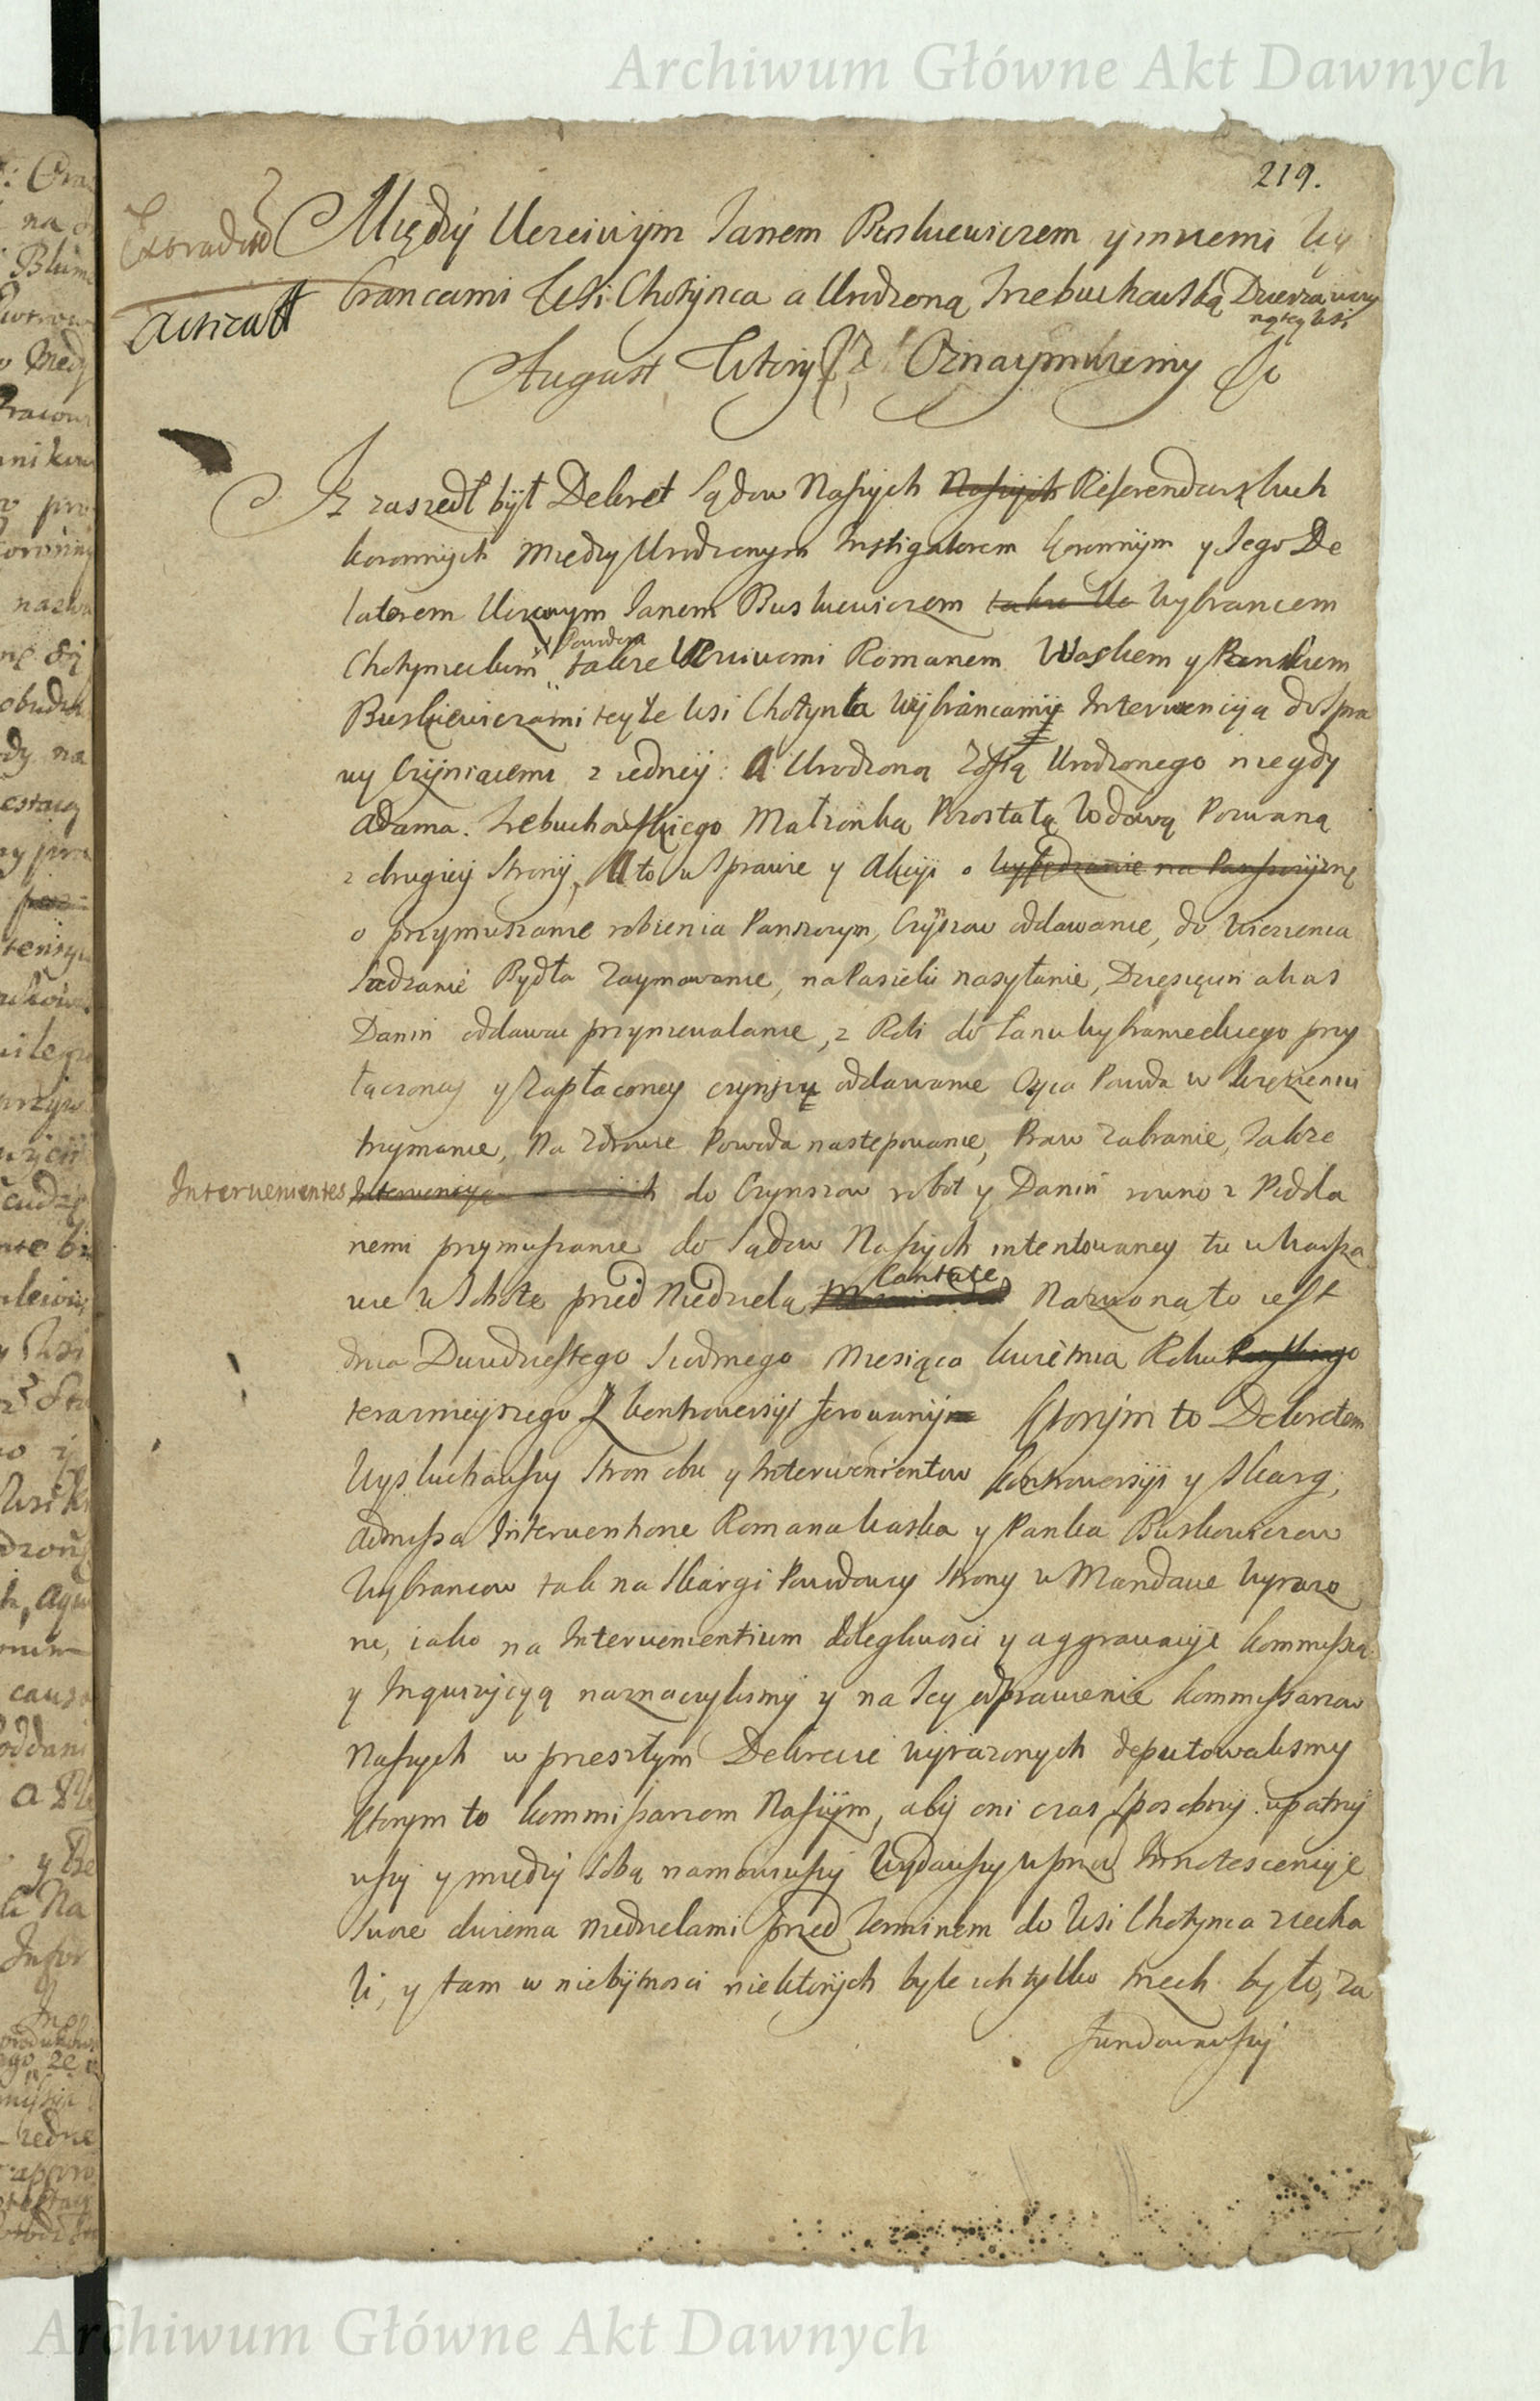 Archiwum Główne Akt Dawnych
219.
Między Uczciwym Janem Buskiewiczem y innemi Wy
brancami Wsi Chotynca a Urodzoną Trzebuchowską Dzierzawczy
ną tey Wsi
August Wtory Oznaymuiemy
Iz zaszedł był Dekret Sądow Naszych Naszych Referendarskich
koronnych między Urodzonym Instigatorem koronnym y Jego De
latorem Uczciwym Janem Buskiewiczem także Wybrancem
Powodem
Chotynieckim także Uczciwemi Romanem Waskem y Pankiem
Buskiewiczami teyże Wsi Chotynca Wybrancamy Interwencyą do Spra
wy Czyniącemi z iedney: A Urodzoną Zofią Urodzonego niegdy
Adama Trebuchowskiego Małżonką Pozostałą Wdową Pozwaną
z drugiey Strony, A to w Sprawie y Akcyi o na Panszczyznę
o przymuszanie robienia Panszczyzn, Czynszow oddawanie, do Wiezienia
Sadzanie Bydła Zaymowanie, na Pasieki nasyłanie, Dziesięcin akas
Danin oddawac przyniewalanie, z Roli do Łanu Wybranieckiego przy
łączoney y Zapłaconey czynszu oddawanie Oyca Powoda w Więzieniu
trzymanie, Na Zdrowie Powoda nastepowanie, Praw Zabranie, Także
Intervenientes do Czynszow robot y Danin rowno z Podda
nemi przymuszanie do Sądow Naszych intentowaney tu w Warsza
Cantate
wie w Sobotę przed Niedzielą Nazwaną to iest
dnia Dwudziestego Siodmego Miesiąca kwietnia Roku
terazniejszego z kontrowersyi ferowany Ktorym to Dekretem
Wysłuchawszy Stron obu y Interwenientow kontrowersyi y Skarg,
Admissa Interventione Romana Waska y Panka Buskowiczow
Wybrancow tak na Skargi Powodowey Strony w Mandacie Wyrazo
ne, iako na Intervenientium dolegliwosci y aggrawacye kommissią
y Inquizycyą naznaczylismy y na Jey odprawienie kommissarzow
Naszych w przeszłym Dekrecie wyrazonych deputowalismy
Ktorym to kommissarzom Naszym, aby oni czas sposobny upatrzy
wszy y między sobą namowiwszy Wydawszy wprzod Innotescencye
swoie dwiema niedzielami przed Terminem do Wsi Chotynca ziecha
li, y tam w niebytnosci niektorych byle ich tylko trzech było, za
fundowawszy
Archiwum Główne Akt Dawnych